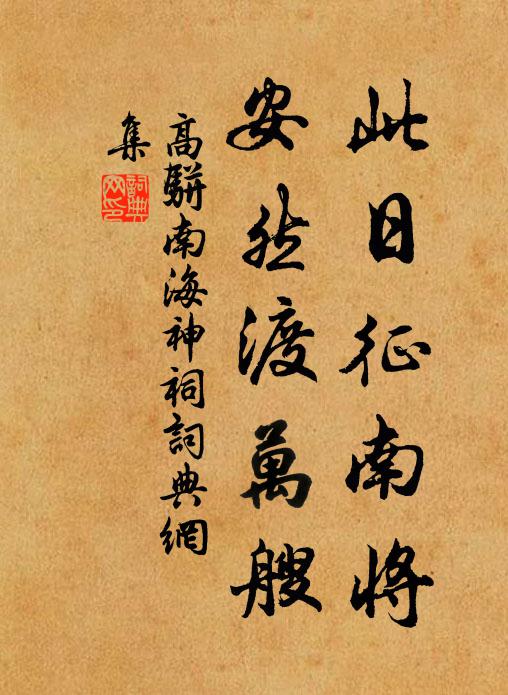 此日征南將
安然渡萬艘
高駢南海神祠詞典網
集
詞典網印